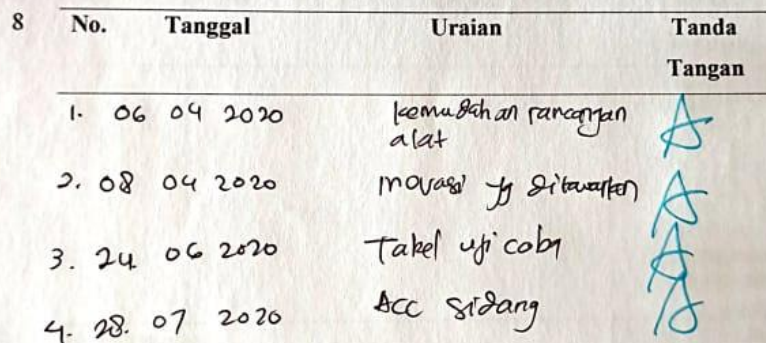 8 No. Tanggal Uraian Tanda
Tangan
1. 06 04 2020 kemudahan rancangan
alat
2. 08 04 2020 inovasi yg ditawarkan
3. 24 06 2020 Tabel uji coba
4. 28. 07 2020 Acc sidang